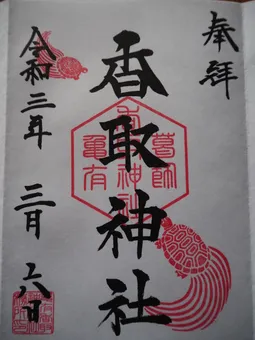 奉拝
香取神社
葛飾
香取神社
亀有
令和三年三月二八日